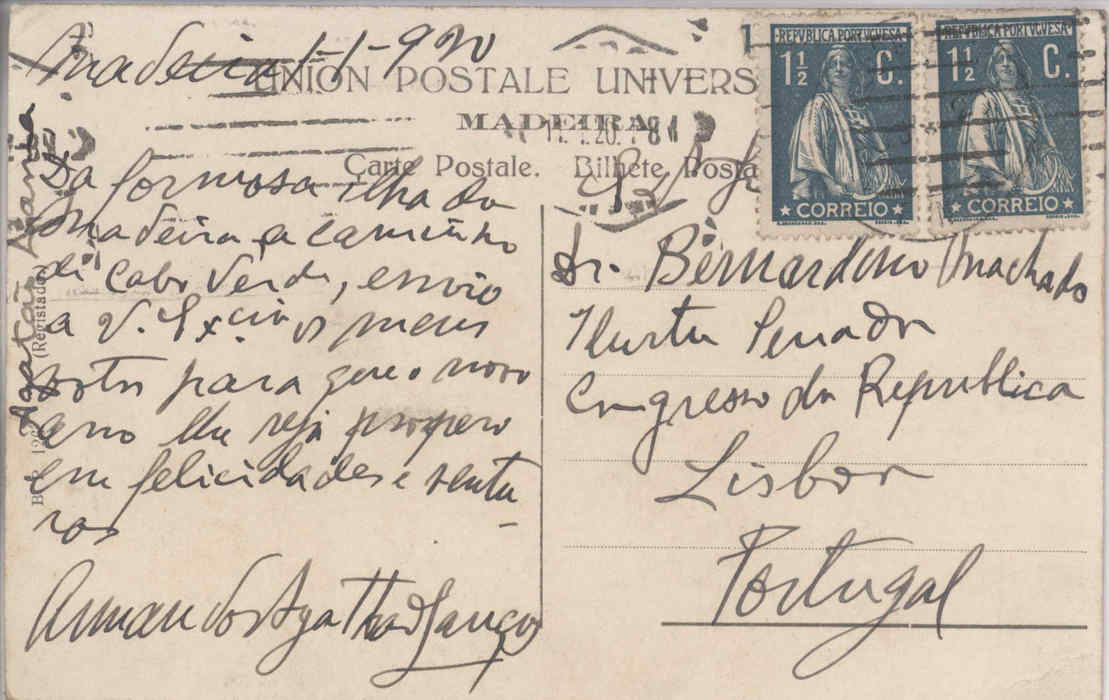 Madeira 1-1-920
UNION POSTALE UNIVERS
MADEIRA
Carte Postale. Bilhete Posta
REPVBLICA PORTVGVESA
1½ C.
CORREIO
REPVBLICA PORTVGVESA
1½ C.
CORREIO
Da formosa ilha da
Madeira a caminho
de Cabo Verde, envio
a V. Ex.cia os meus
votos para que o novo
ano lhe seja prospero
em felicidades e ventu
ras
Armando
Dr. Bernardino Machado
Ilustre Senador
Congresso da Republica
Lisboa
Portugal
(Registado)